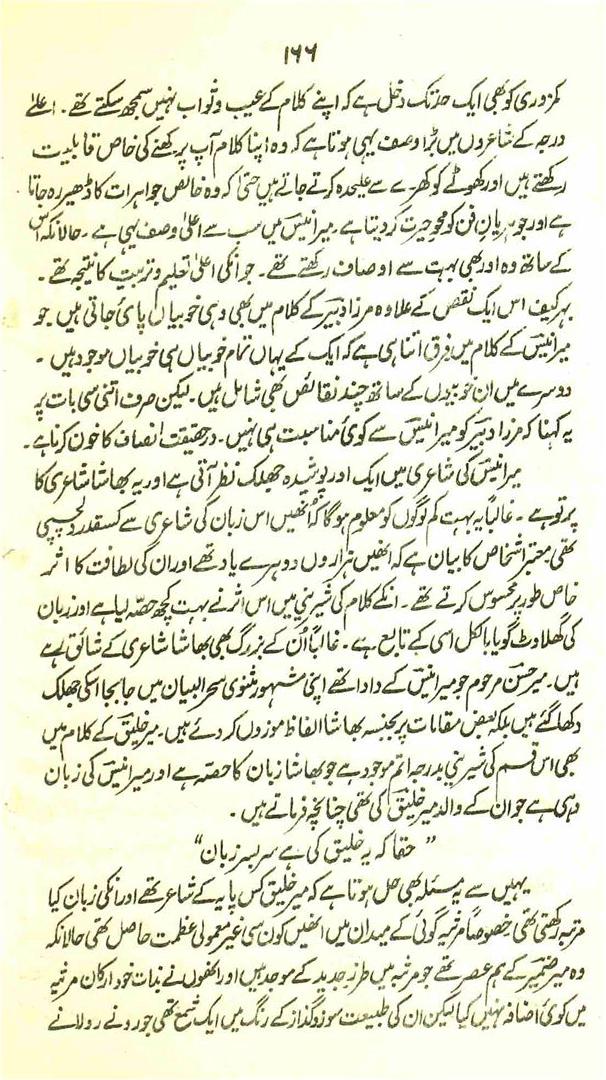 ۱۶۶
کمزوری کو بھی ایک حد تک دخل ہے کہ اپنے کلام کے عیب و ثواب نہیں سمجھ سکتے تھے۔ اعلےٰ
درجہ کے شاعروں میں بڑا وصف یہی ہوتا ہے کہ وہ اپنا کلام آپ پرکھنے کی خاص قابلیت
رکھتے ہیں اور کھوٹے کو کھرے سے علیحدہ کرتے جاتے ہیں حتیٰ کہ وہ خالص جواہرات کا ڈھیر رہ جاتا
ہے اور جوہریانِ فن کو محوِ حیرت کر دیتا ہے۔ میر انیسؔ میں سب سے اعلیٰ وصف یہی ہے۔ حالانکہ اس
کے ساتھ وہ اور بھی بہت سے اوصاف رکھتے تھے۔ جو انکی اعلیٰ تعلیم و تربیت کا نتیجہ تھے۔
بہرکیف اس ایک نقص کے علاوہ مرزا دبیرؔ کے کلام میں بھی وہی خوبیاں پائی جاتی ہیں جو
میر انیسؔ کے کلام میں فرق اتنا ہی ہے کہ ایک کے یہاں تمام خوبیاں ہی خوبیاں موجود ہیں۔
دوسرے میں ان خوبیوں کے ساتھ چند نقائص بھی شامل ہیں۔ لیکن صرف اتنی سی بات پر
یہ کہنا کہ مرزا دبیرؔ کو میر انیسؔ سے کوئی مناسبت ہی نہیں۔ درحقیقت انصاف کا خون کرنا ہے۔
میر انیسؔ کی شاعری میں ایک اور پوشیدہ جھلک نظر آتی ہے اور یہ بھاشا شاعری کا
پرتو ہے۔ غالباً یہ بہت کم لوگوں کو معلوم ہوگا کہ انھیں اس زبان کی شاعری سے کسقدر دلچسپی
تھی معتبر اشخاص کا بیان ہے کہ انھیں ہزاروں دوہرے یاد تھے اور ان کی لطافت کا اثر
خاص طور پر محسوس کرتے تھے۔ انکے کلام کی شیرینی میں اس اثر نے بہت کچھ حصّہ لیا ہے اور زبان
کی گھلاوٹ گویا بالکل اسی کے تابع ہے۔ غالباً اُن کے بزرگ بھی بھاشا شاعری کے شائق رہے
ہیں۔ میر حسنؔ مرحوم جو میر انیسؔ کے دادا تھے اپنی مشہور مثنوی سحر البیان میں جا بجا اسکی جھلک
دکھا گئے ہیں بلکہ بعض مقامات پر بجنسہ بھاشا الفاظ موزوں کر دئے ہیں۔ میر خلیقؔ کے کلام میں
بھی اس قسم کی شیرینی بدرجہ اتم موجود ہے جو بھاشا زبان کا حصّہ ہے اور میر انیسؔ کی زبان
وہی ہے جو ان کے والد میر خلیقؔ کی تھی چنانچہ فرماتے ہیں۔
"حقا کہ یہ خلیق کی ہے سر بسر زبان"
یہیں سے یہ مسئلہ بھی حل ہوتا ہے کہ میر خلیقؔ کس پایہ کے شاعر تھے اور انکی زبان کیا
مرتبہ رکھتی تھی۔ خصوصاً مرثیہ گوئی کے میدان میں انھیں کون سی غیر معمولی عظمت حاصل تھی حالانکہ
وہ میر ضمیرؔ کے ہم عصر تھے جو مرثیہ میں طرزِ جدید کے موجد ہیں اور انھوں نے بذات خود ارکان مرثیہ
میں کوئی اضافہ نہیں کیا لیکن ان کی طبیعت سوز و گداز کے رنگ میں ایک شمع تھی جو رونے رولانے